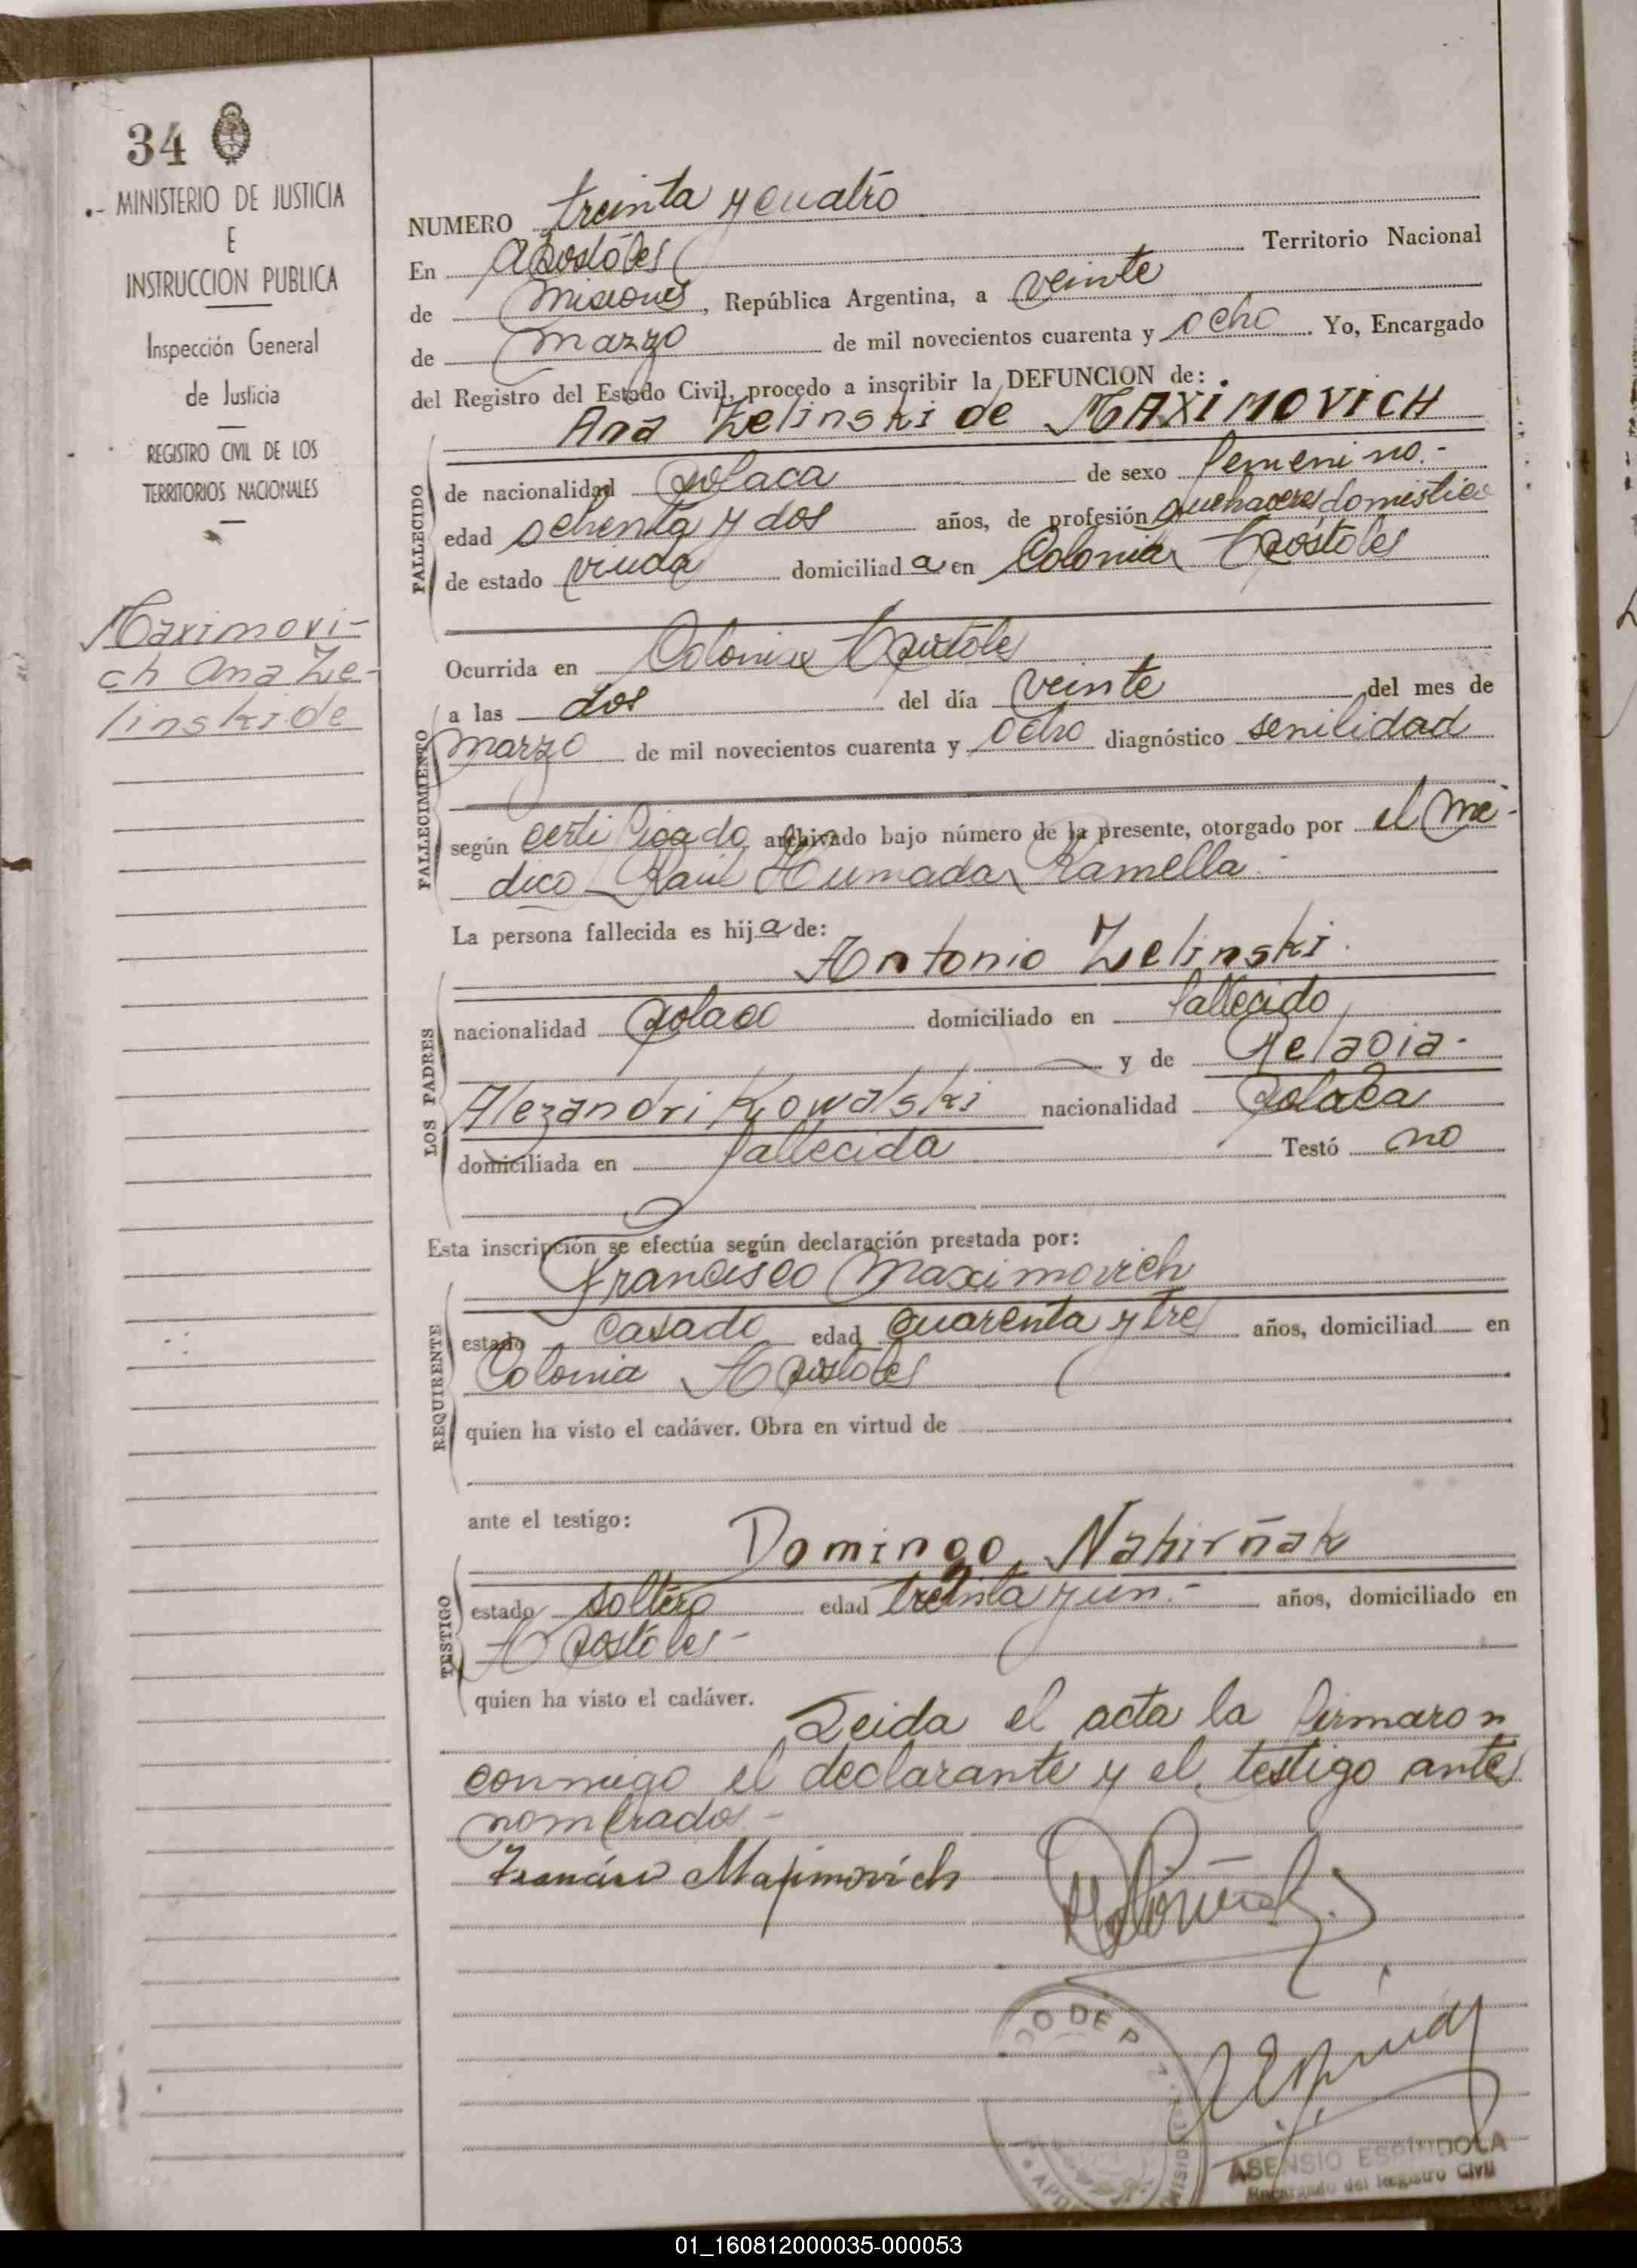 34
.- MINISTERIO DE JUSTICIA
E
INSTRUCCION PUBLICA
Inspección General
de Justicia
REGISTRO CIVIL DE LOS
TERRITORIOS NACIONALES
Maximovi-
ch Ana Ze-
linski de
NUMERO treinta y cuatro
En Apostóles Territorio Nacional
de Misiones, República Argentina, a veinte
de marzo de mil novecientos cuarenta y ocho. Yo, Encargado
del Registro del Estado Civil, procedo a inscribir la DEFUNCION de:
Ana Zelinski de MAXIMOVICH
FALLECIDO
de nacionalidad polaca de sexo femenino.-
edad ochenta y dos años, de profesión quehaceres domésticos
de estado viuda domiciliad a en Colonia Apóstoles
Ocurrida en Colonia Apóstoles
FALLECIMIENTO
a las dos del día veinte del mes de
marzo de mil novecientos cuarenta y ocho diagnóstico senilidad
según certificado archivado bajo número de la presente, otorgado por el mé-
dico Raúl Humada Ramella.-
La persona fallecida es hij a de:
Antonio Zelinski.
LOS PADRES
nacionalidad polaco domiciliado en fallecido
y de Pelagia-
Alezandri Kowalski nacionalidad polaca
domiciliada en fallecida Testó no
Esta inscripción se efectúa según declaración prestada por:
Francisco Maximovich
REQUIRENTE
estado casado edad cuarenta y tres años, domiciliad en
Colonia Apóstoles
quien ha visto el cadáver. Obra en virtud de
ante el testigo:
Domingo Nahirñak
TESTIGO
estado soltero edad treinta y un.- años, domiciliado en
Apóstoles-
quien ha visto el cadáver. Leida el acta la firmaron
conmigo el declarante y el testigo antes
nombrados-
Francisco Maximovich
DO DE P
ASENSIO ESPINDOLA
Encargado del Registro Civil
01_160812000035-000053